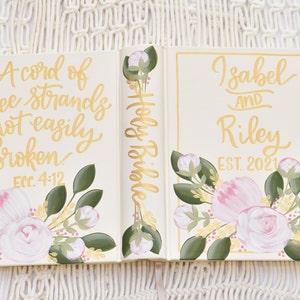 A cord of
ee strands
not easily
broken
Ecc. 4:12
Holy Bible
Isabel
AND
Riley
EST. 2021